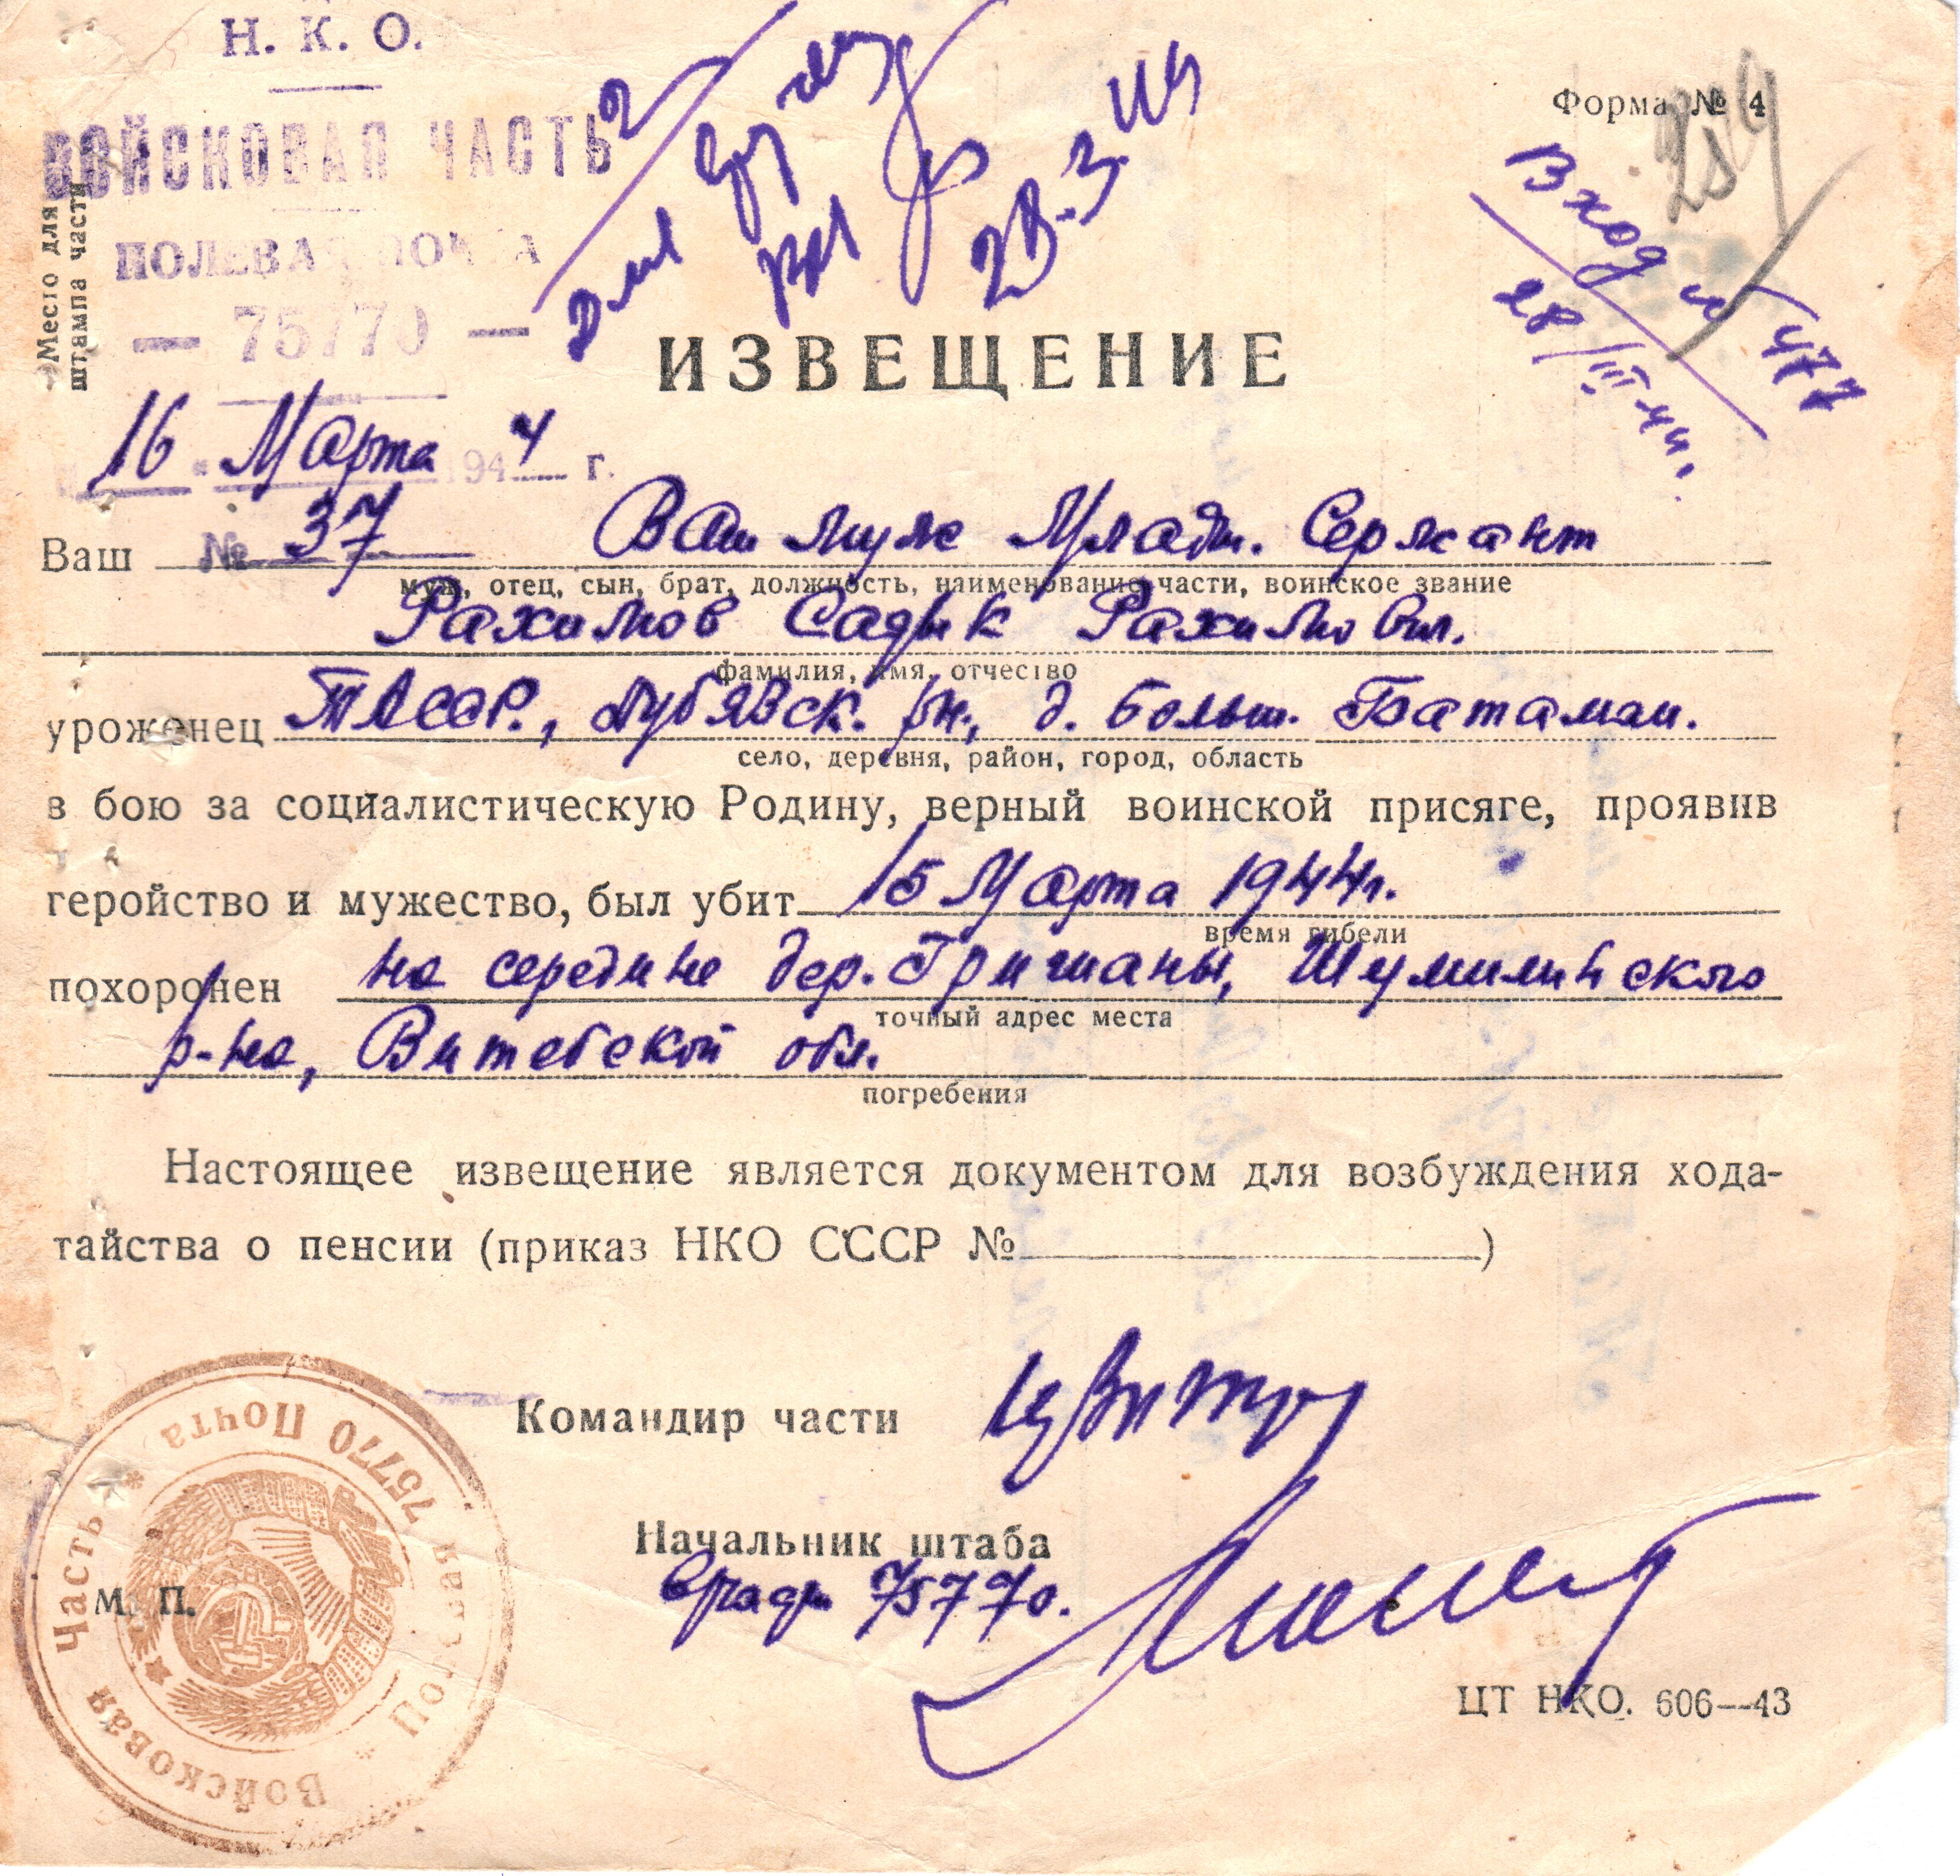 Н. К. О.
ВОЙСКОВАЯ ЧАСТЬ
ПОЛЕВАЯ ПОЧТА
— 75770 —
Место для
штампа части
Форма № 4
259
Вход № 477
28/III-44.
28.3.44
ИЗВЕЩЕНИЕ
16 Марта 1944 г.
№ 37
Ваш Ваш муж Младш. Сержант
муж, отец, сын, брат, должность, наименование части, воинское звание
Рахимов Садык Рахимович.
фамилия, имя, отчество
уроженец ТАССР., Лубянск. рн, д. Больш. Батаман.
село, деревня, район, город, область
в бою за социалистическую Родину, верный воинской присяге, проявив
геройство и мужество, был убит 15 Марта 1944г.
время гибели
похоронен на середине дер. Гришаны, Шумилинского
точный адрес места
р-на, Витебской обл.
погребения
Настоящее извещение является документом для возбуждения хода-
тайства о пенсии (приказ НКО СССР № )
Командир части
Начальник штаба
75770.
М. П.
Войсковая Часть * 75770 Почта Полевая *
ЦТ НКО. 606—43